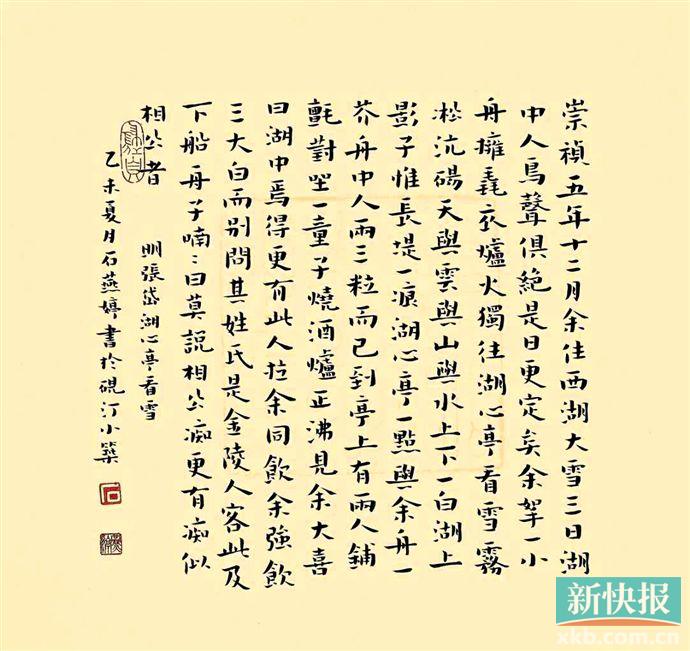 崇禎五年十二月余住西湖大雪三日湖
中人鳥聲俱絕是日更定矣余挐一小
舟擁毳衣爐火獨往湖心亭看雪霧
凇沆碭天與雲與山與水上下一白湖上
影子惟長堤一痕湖心亭一點與余舟一
芥舟中人兩三粒而已到亭上有兩人鋪
氈對坐一童子燒酒爐正沸見余大喜
曰湖中焉得更有此人拉余同飲余強飲
三大白而別問其姓氏是金陵人客此及
下船舟子喃〻曰莫説相公痴更有痴似
相公者
明張岱湖心亭看雪
乙未夏月石燕婷書於硯汀小築
新快报
xkb.com.cn